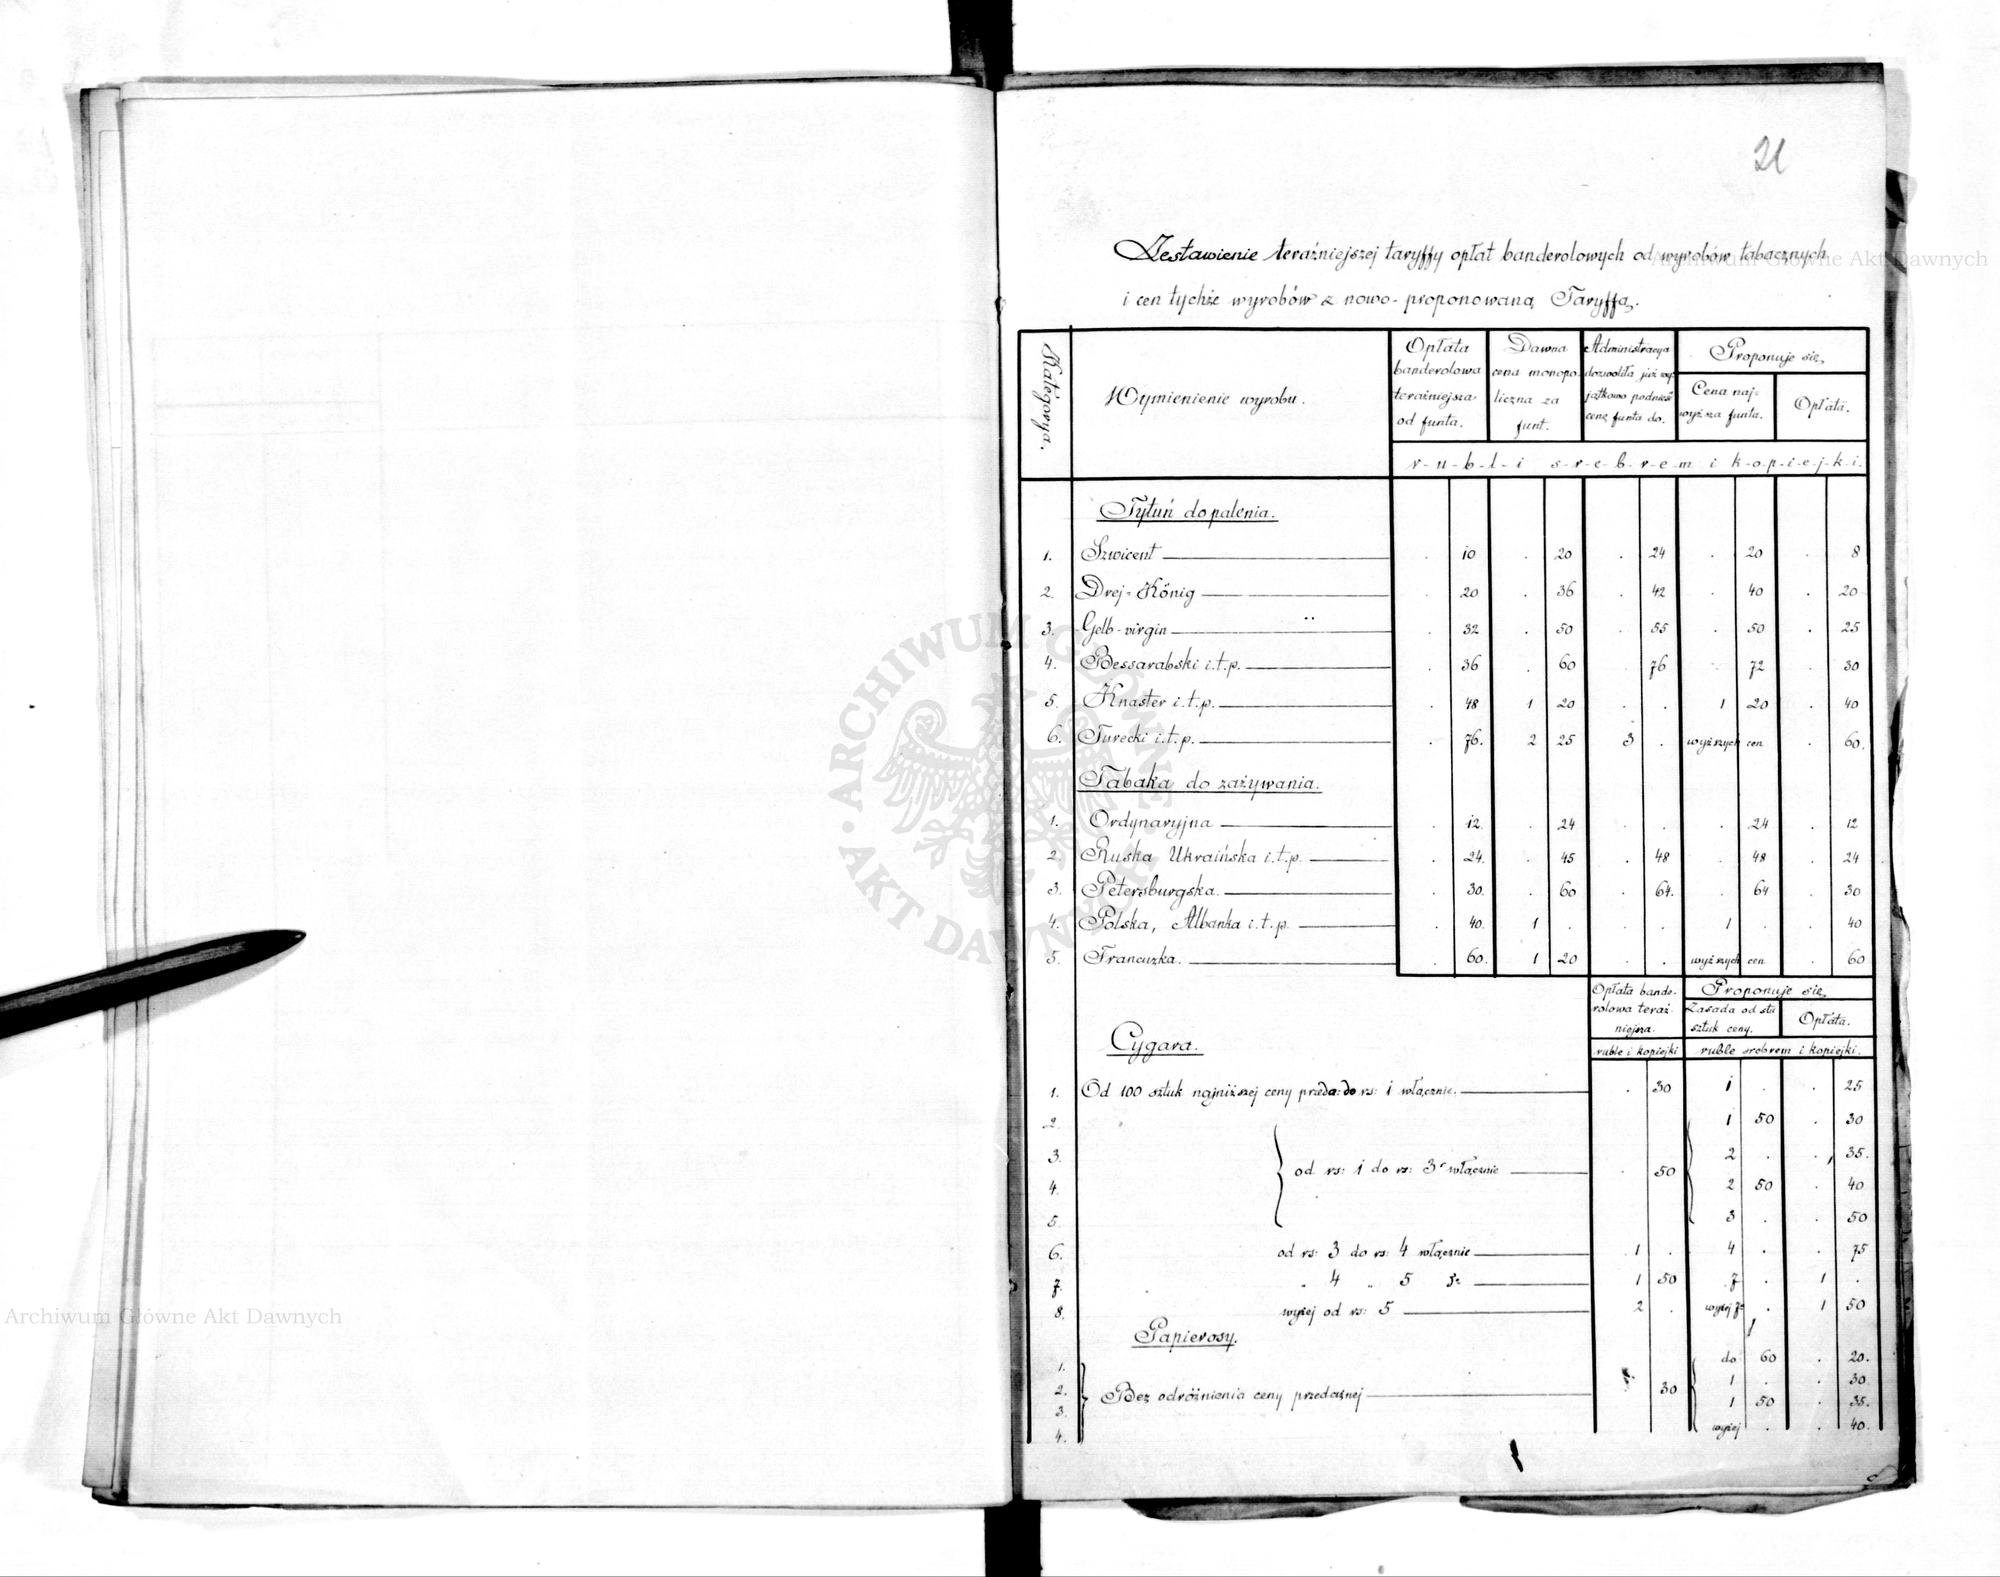 21
Zestawienie teraźniejszej taryffy opłat banderolowych od wyrobów tabacznych
i cen tychże wyrobów z nowo-proponowaną Taryffą.
Kategorya. Wymienienie wyrobu. Opłata banderolowa teraźniejsza od funta. Dawna cena monopoliczna za funt. Administracya dozwoliła już wyjątkowo podnieść cenę funta do. Proponuje się, Cena najwyższa funta. Opłata.
r-u-b-l-i s-r-e-b-r-e-m i k-o-p-i-e-j-k-i.
Tytuń do palenia.
1. Szwicent . 10 . 20 . 24 . 20 8
2. Drej-König . 20 . 36 . 42 . 40 . 20
3. Gelb-virgin . 32 . 50 . 55 . 50 . 25
4. Bessarabski i.t.p. . 36 . 60 . 76 . 72 . 30
5. Knaster i.t.p. . 48 1 20 . . 1 20 . 40
6. Turecki i.t.p. . 76. 2 25 3 . wyższych cen . 60.
Tabaka do zażywania.
1. Ordynaryjna . 12. . 24 . . . 24 . 12
2. Ruska Ukraińska i.t.p. . 24. . 45 . 48 . 48 . 24
3. Petersburgska. . 30. . 60 . 64. . 64 . 30
4. Polska, Albanka i.t.p. . 40. 1 . . . 1 . . 40
5. Francuzka. . 60. 1 20 . . wyższych cen . 60
Opłata banderolowa teraźniejsza. Proponuje się, Zasada od stu sztuk ceny. Opłata.
ruble i kopiejki ruble srebrem i kopiejki.
Cygara.
1. Od 100 sztuk najniższej ceny przeda: do rs: 1 włącznie. . 30 1 . . 25
2. 1 50 . 30
3. od rs: 1 do rs: 3 włącznie . 50 2 . . 35.
4. 2 50 . 40
5. 3 . . 50
6. od rs: 3 do rs: 4 włącznie 1 . 4 . . 75
7. " 4 " 5 1 50 7 . 1 .
8. wyżej od rs: 5 2 . wyżej 7 . 1 50
Papierosy.
1. do 60 . 20.
2. Bez odróżnienia ceny przedażnej 30 1 . . 30
3. 1 50 . 35.
4. wyżej . . 40.
Archiwum Główne Akt Dawnych
ARCHIWUM GŁÓWNE AKT DAWNYCH
Archiwum Główne Akt Dawnych